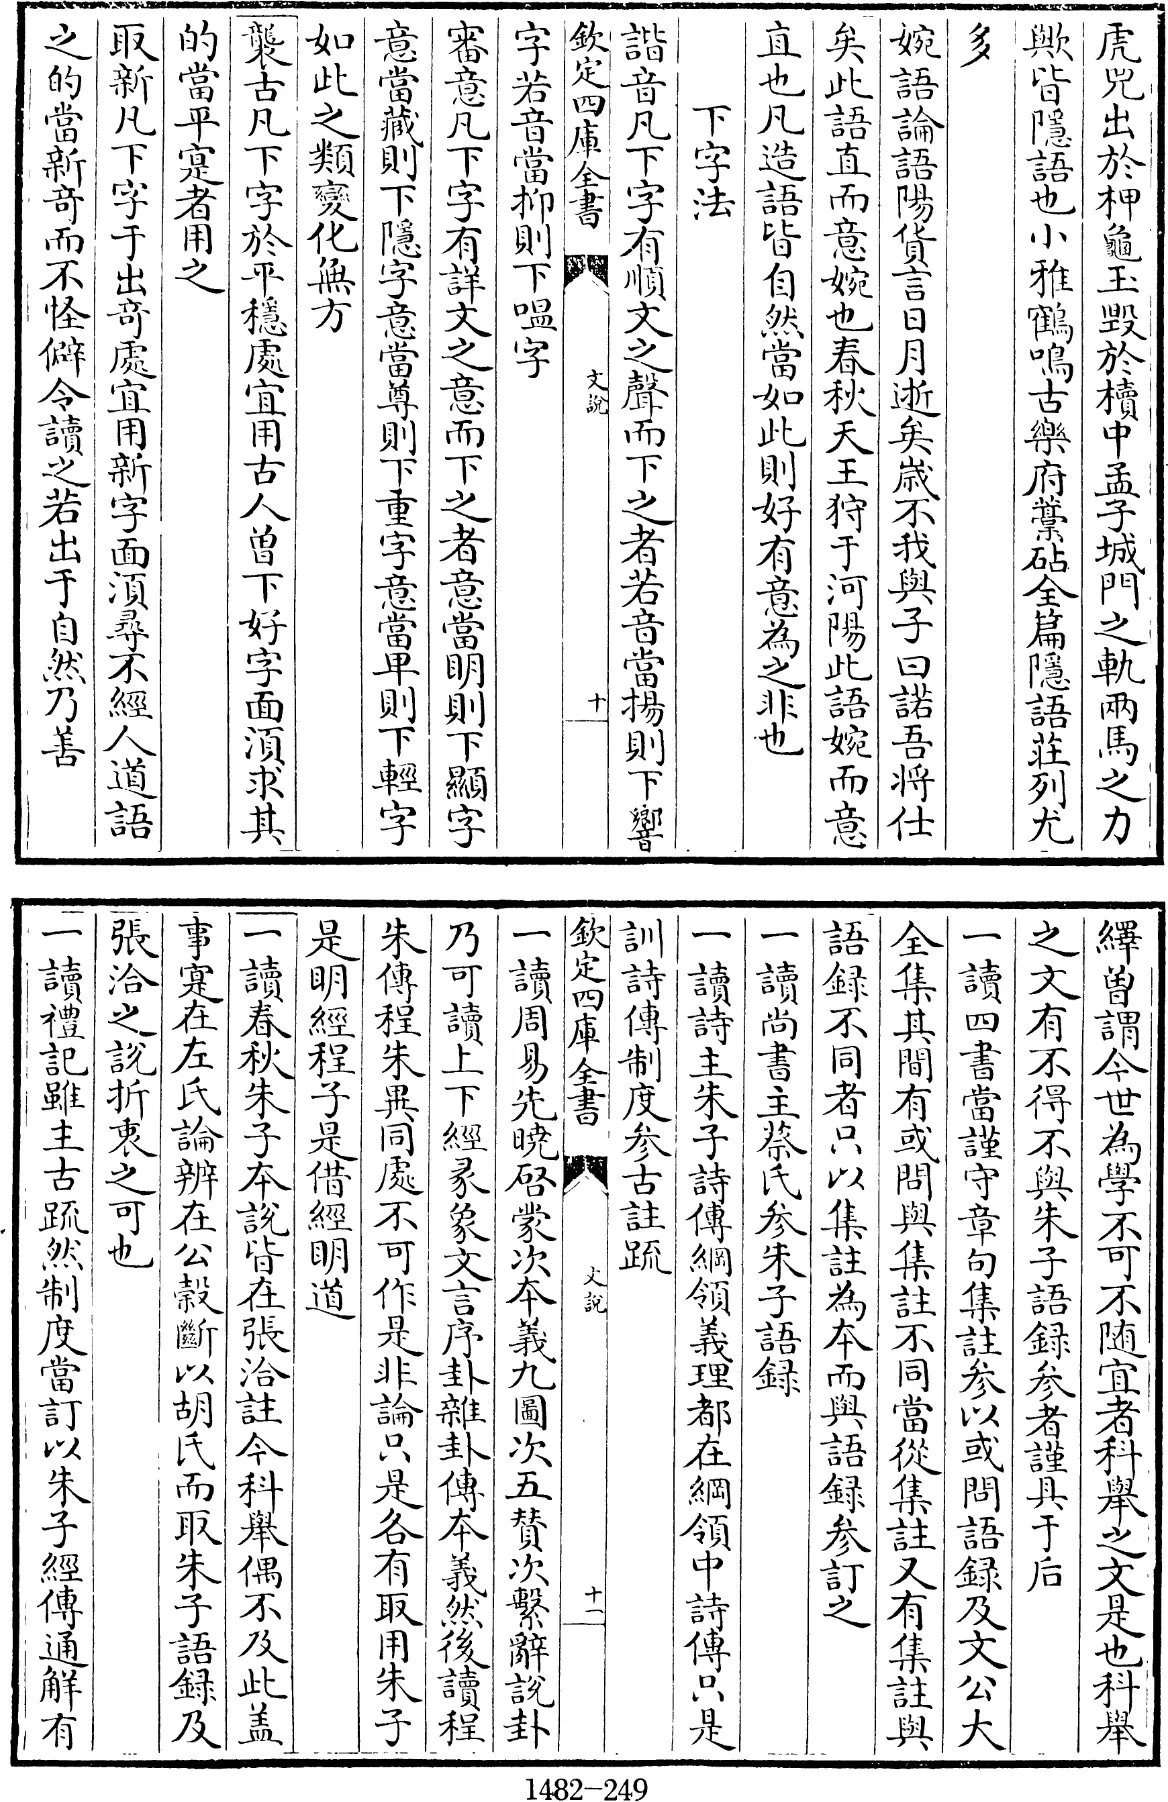 虎兕出於柙龜玉毀於櫝中孟子城門之軌兩馬之力
歟皆隱語也小雅鶴鳴古樂府藁砧全篇隱語莊列尤
多
婉語論語陽貨言日月逝矣嵗不我與子曰諾吾將仕
矣此語直而意婉也春秋天王狩于河陽此語婉而意
直也凡造語皆自然當如此則好有意為之非也
下字法
諧音凡下字有順文之聲而下之者若音當揚則下響
欽定四庫全書
文說
十
字若音當抑則下嗢字
審意凡下字有詳文之意而下之者意當明則下顯字
意當藏則下隱字意當尊則下重字意當卑則下輕字
如此之類變化無方
襲古凡下字於平穩處宜用古人曾下好字面湏求其
的當平寔者用之
取新凡下字于出奇處宜用新字面湏尋不經人道語
之的當新奇而不怪僻令讀之若出于自然乃善
繹曽謂今世為學不可不随宜者科舉之文是也科舉
之文有不得不與朱子語録参者謹具于后
一讀四書當謹守章句集註参以或問語録及文公大
全集其間有或問與集註不同當從集註又有集註與
語録不同者只以集註為本而與語録参訂之
一讀尚書主蔡氏参朱子語録
一讀詩主朱子詩傳綱領義理都在綱領中詩傳只是
訓詩傳制度参古註疏
欽定四庫全書
文說
十一
一讀周易先曉啓蒙次本義九圖次五贊次繫辭說卦
乃可讀上下經彖象文言序卦雜卦傳本義然後讀程
朱傳程朱異同處不可作是非論只是各有取用朱子
是明經程子是借經明道
一讀春秋朱子本說皆在張洽註今科舉偶不及此盖
事寔在左氏論辨在公榖斷以胡氏而取朱子語録及
張洽之說折衷之可也
一讀禮記雖主古疏然制度當訂以朱子經傳通解有
1482-249